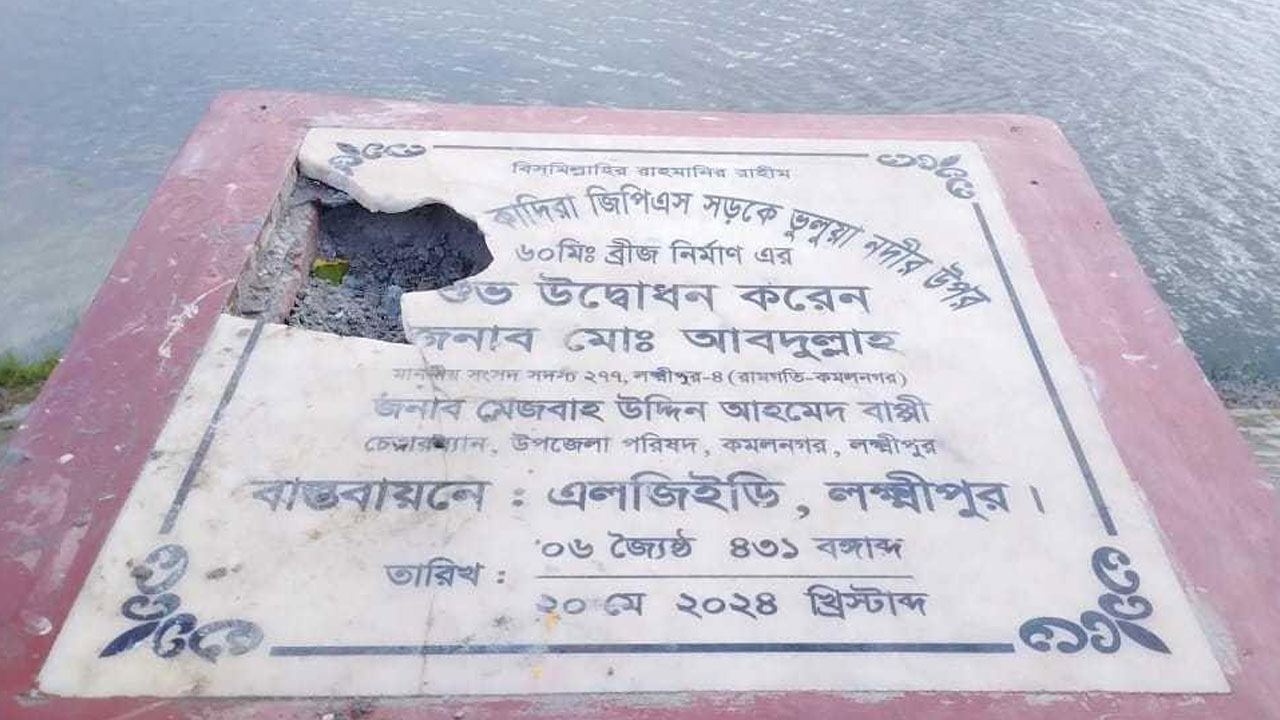 বিসমিল্লাহির রাহমানির রাহীম
কাদিরা জিপিএস সড়কে ভুলুয়া নদীর উপর
৬০মিঃ ব্রীজ নির্মাণ এর
শুভ উদ্বোধন করেন
জনাব মোঃ আবদুল্লাহ
মাননীয় সংসদ সদস্য ২৭৭, লক্ষ্মীপুর-৪ (রামগতি-কমলনগর)
জনাব মেজবাহ উদ্দিন আহমেদ বাপ্পী
চেয়ারম্যান, উপজেলা পরিষদ, কমলনগর, লক্ষ্মীপুর
বাস্তবায়নে : এলজিইডি, লক্ষ্মীপুর।
০৬ জ্যৈষ্ঠ ৪৩১ বঙ্গাব্দ
তারিখ :
২০ মে ২০২৪ খ্রিস্টাব্দ